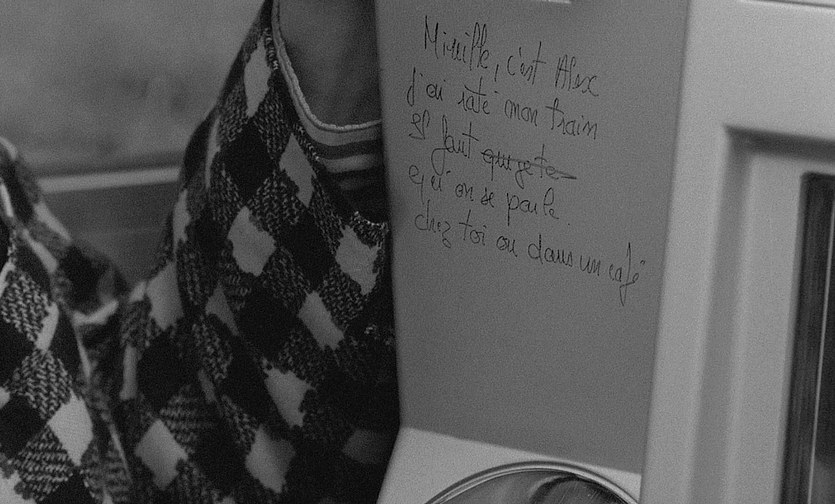 Mireille, c'est Alex
j'ai raté mon train
Il faut que je te
qu'on se parle.
chez toi ou dans un café